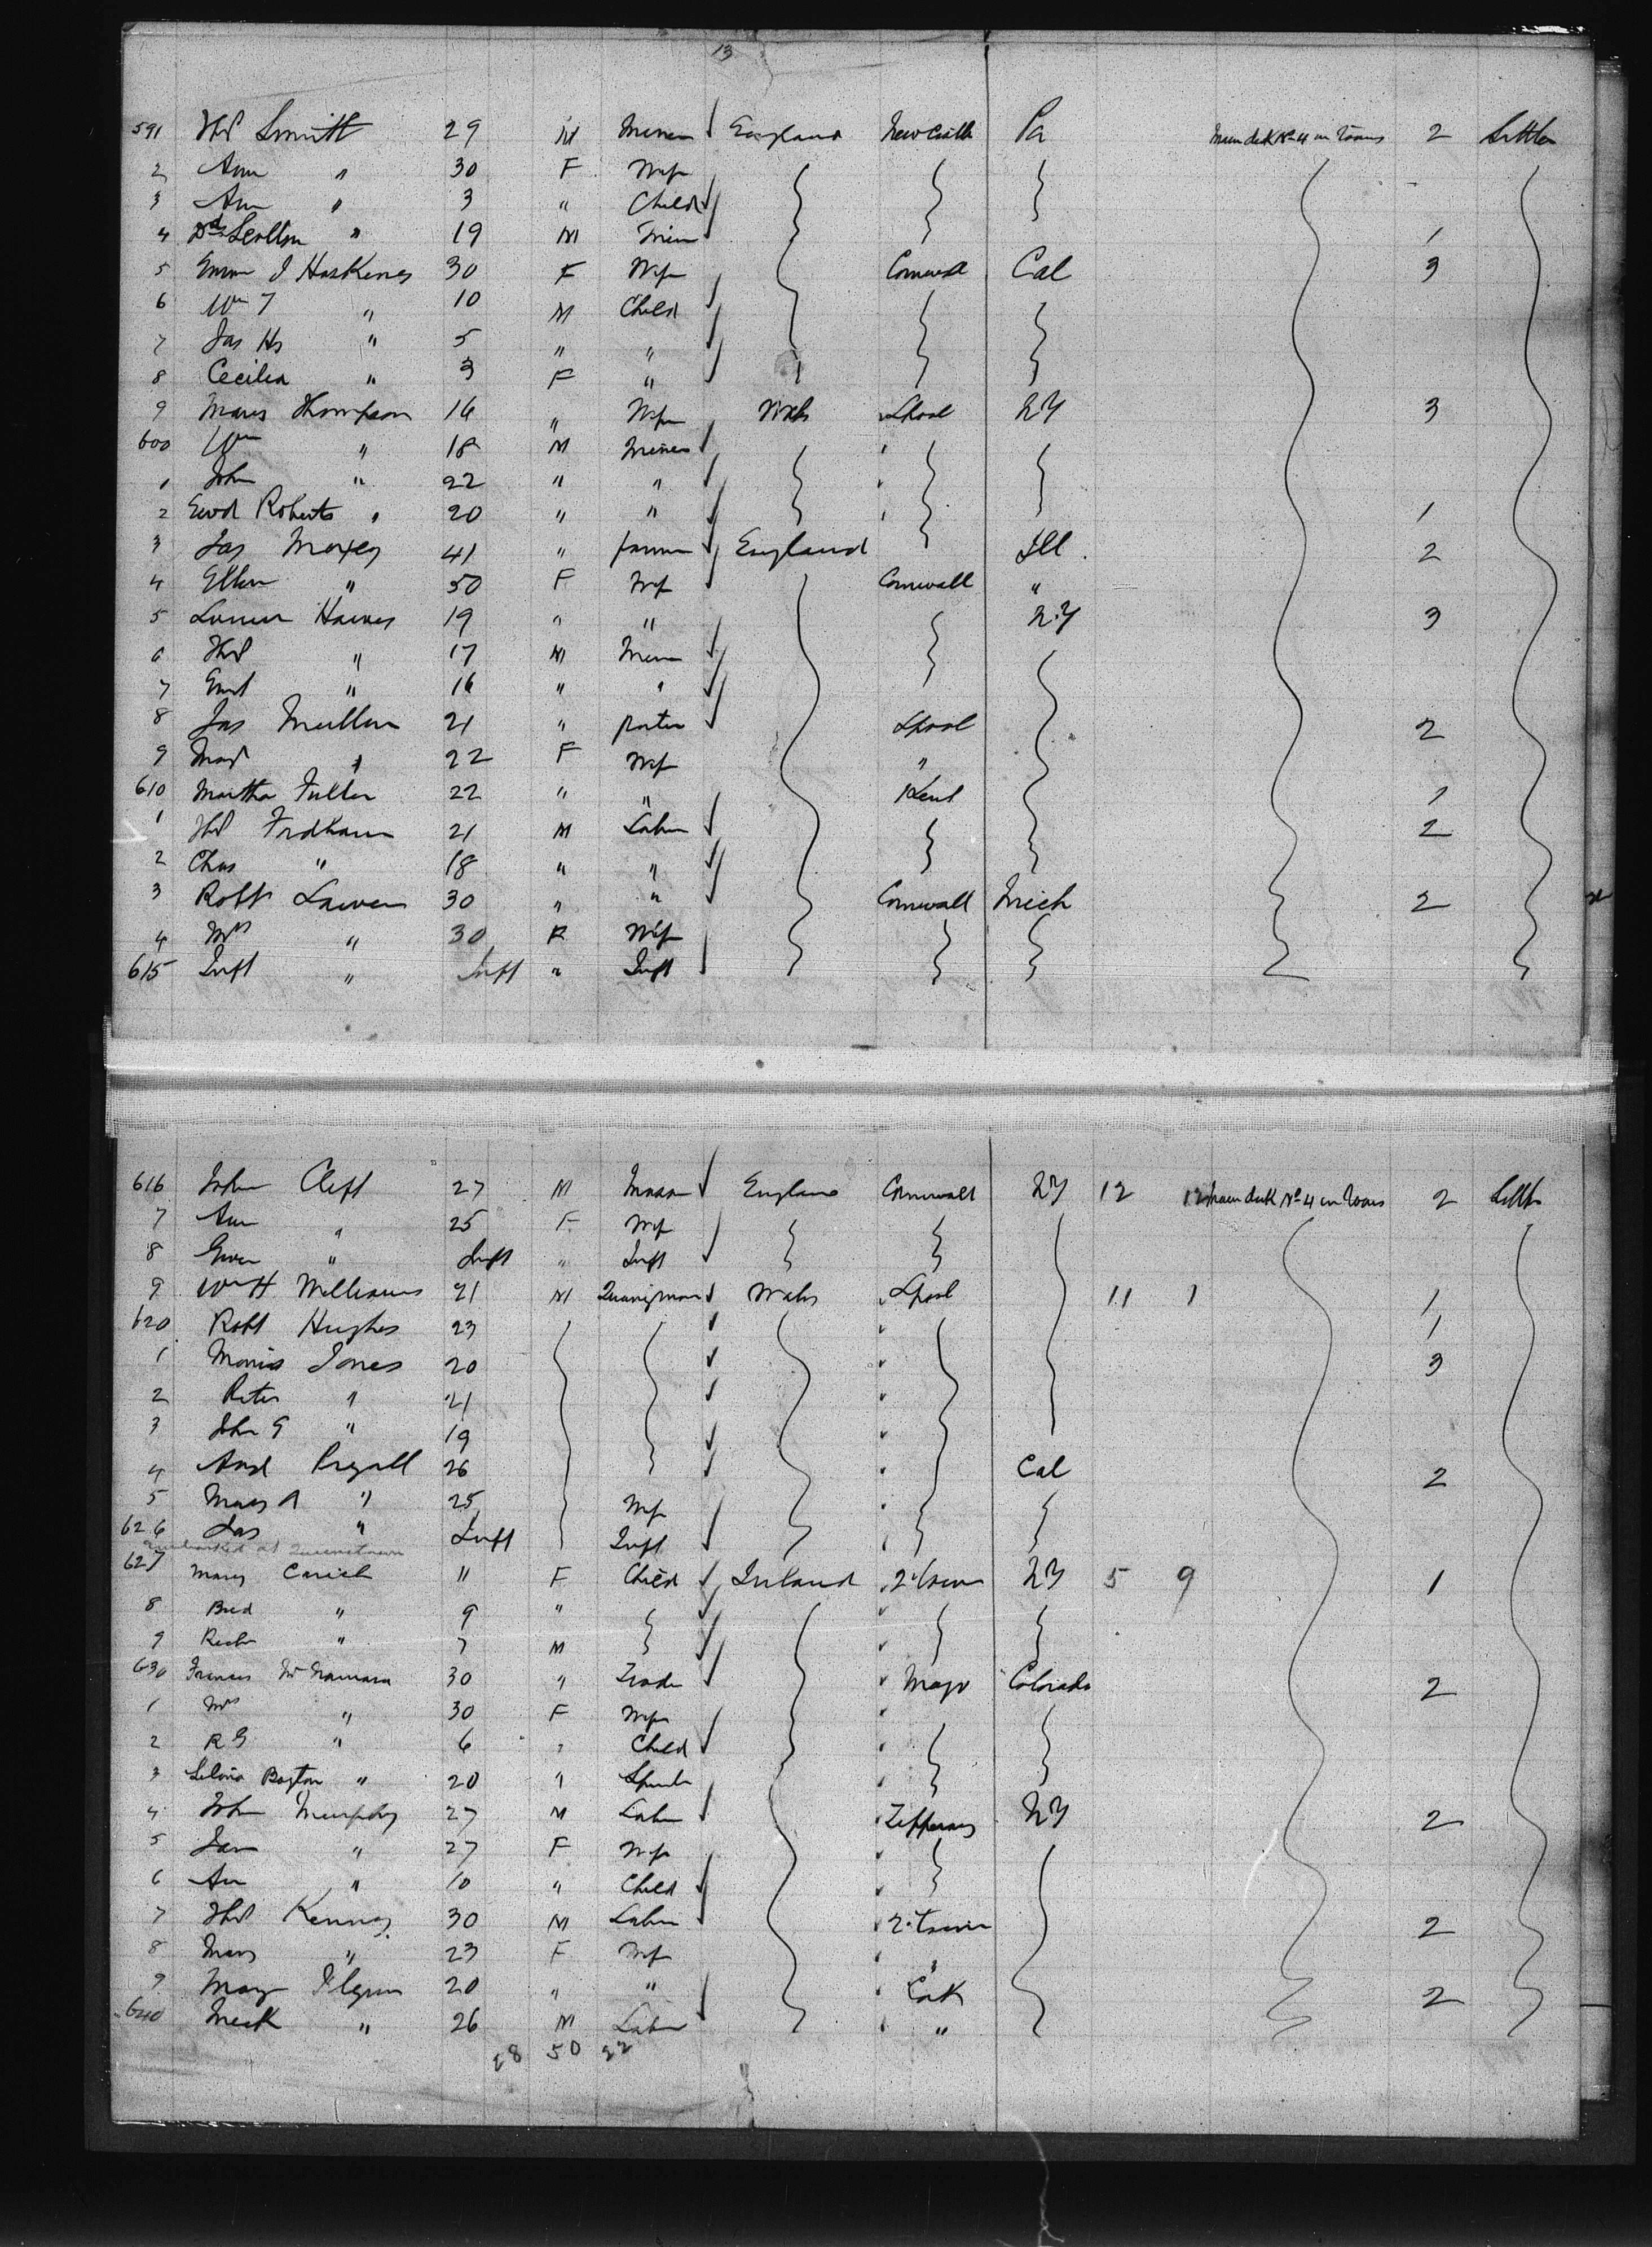 13
591 Thos Smith 29 M Miner England New Castle Pa Main deck No 4 in Toms 2 Settler
2 Ann " 30 F Wife
3 Ann " 3 " Child
4 19 M Miner 1
5 Emma J Hoskings 30 F Wife Cornwall Cal 3
6 Wm T " 10 M Child
7 Jas Hy " 5 " "
8 Cecilia " 3 F "
9 Mary Thompson 16 " Wife Wales Lpool NY 3
600 Wm " 18 M Miner
1 John " 22 " "
2 Ewd Roberts " 20 " " 1
3 Jas Moxey 41 " farmer England Ill. 2
4 Ellen " 50 F Wife Cornwall "
5 19 " " N.Y 3
6 Thos " 17 M Miner
7 " 16 " "
8 Jas Mullen 21 " porter Lpool 2
9 " 22 F Wife "
610 Martha Fuller 22 " " Kent 1
1 Thos Fordham 21 M Labr 2
2 Chas " 18 " "
3 Robt 30 " " Cornwall Mich 2
4 Mrs " 30 F Wife
615 Inft " Inft " Inft
616 John Clift 27 M Mason England Cornwall NY 12 12 Main deck No 4 in Toms 2 Settler
7 Ann " 25 F Wife
8 " Inft " Inft
9 Wm H Williams 21 M Quarryman Wales Lpool 11 1 1
620 Robt Hughes 23 1
1 Morris Jones 20 3
2 Peter " 21
3 John G " 19
4 And 26 Cal 2
5 Mary A " 25 Wife
626 Jas " Inft Inft
Embarked at Queenstown
627 Mary " F Child Ireland Q.town NY 5 9 1
8 Brid " 9 "
9 Richd " 7 M
630 Frances McNamara 30 " Mayo Colorado 2
1 Mrs " 30 F Wife
2 R G " 6 " Child
3 " 20 "
4 John Murphy 27 M Labr NY 2
5 Jane " 27 F Wife
6 Ann " 10 " Child
7 Thos Kenney 30 M Labr Q.town 2
8 Mary " 23 F Wife "
9 Mary 20 " " Cork 2
640 " 26 M Labr "
28 50 22